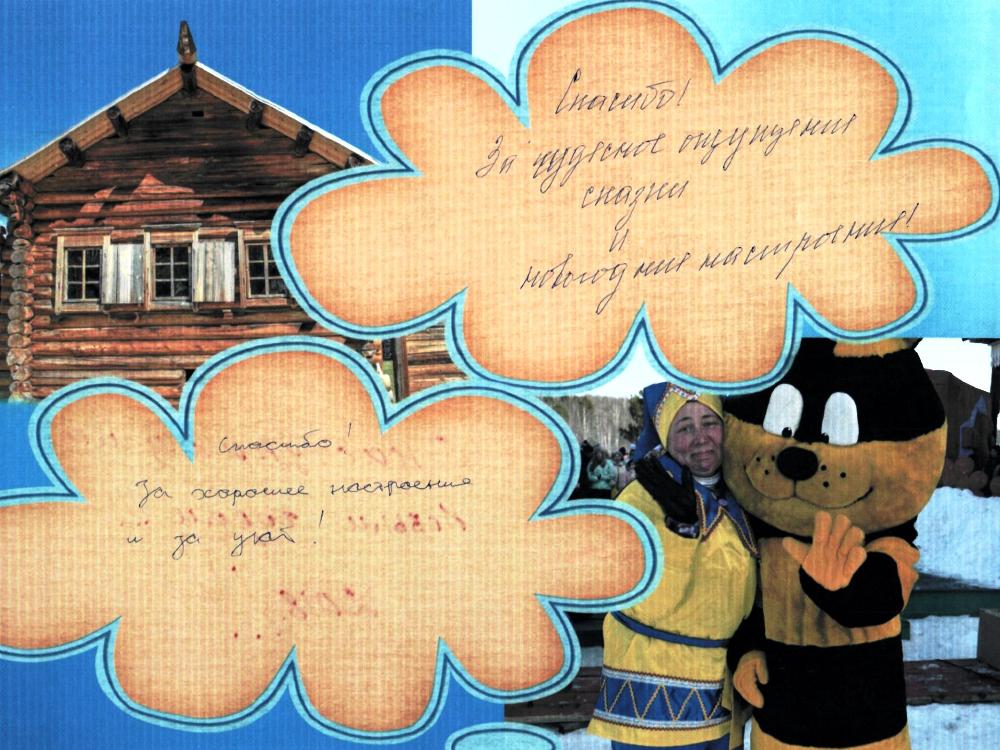 Спасибо!
За чудесное ощущение
сказки
и
новогоднее настроение!
Спасибо!
За хорошее настроение
и за уют!